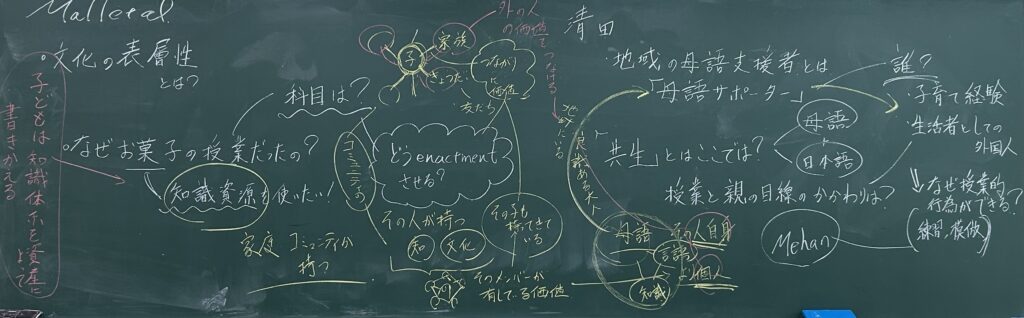 ・文化の表層性
とは?
・なぜお菓子の授業だったの?
科目は?
知識資源を使いたい!
家庭 コミュニティが
持つ
子どもは知識体系を資産に
書きかえる
子
家族
友だち
外の人
の価値を
つなげる
つながり
に価値
どうenactment
させる?
コミュニティの
その人が持つ
知
文化
その子も
持ってきて
いる
そのメンバーが
有している価値
清田
・地域の母語支援者とは
「母語サポーター」
誰?
・子育て経験
・生活者としての
外国人
「共生」とはここでは?
母語
日本語
授業と親の目線のかかわりは?
なぜ授業的
行為ができる?
Mehan
母語
自身
言語
個人
知識